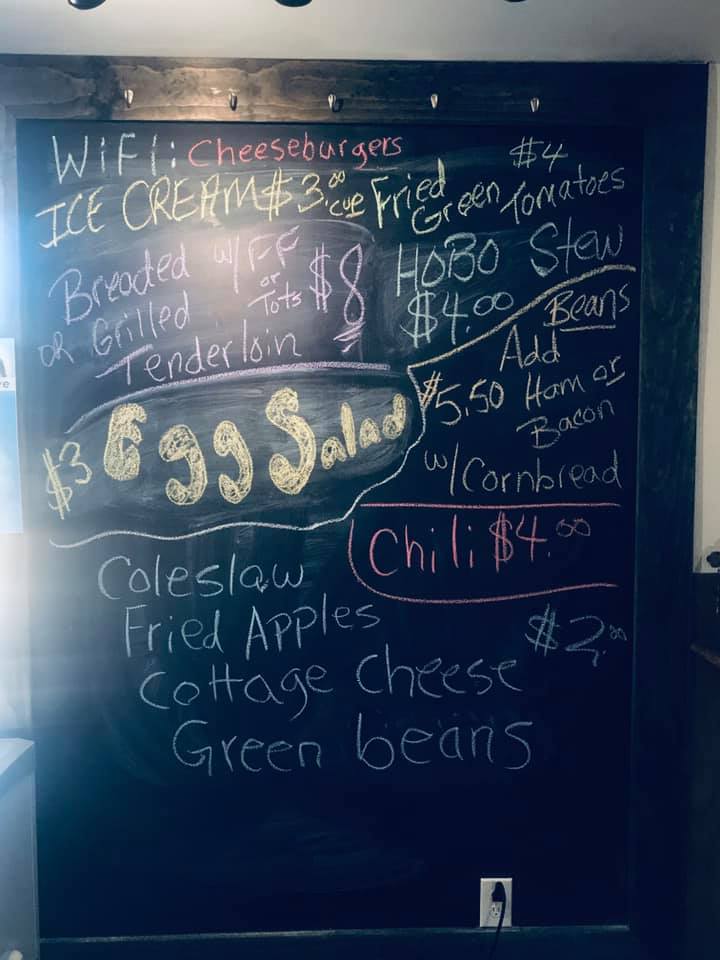 WiFi: Cheeseburgers
ICE CREAM $3.00
Fried Green Tomatoes $4
Breaded w/FF
or Grilled or Tots $8
Tenderloin
HOBO Stew
$4.00
Beans
Add
$5.50 Ham or
Bacon
w/Cornbread
$3 Egg Salad
Chili $4.00
Coleslaw
Fried Apples
$2.00
Cottage Cheese
Green beans